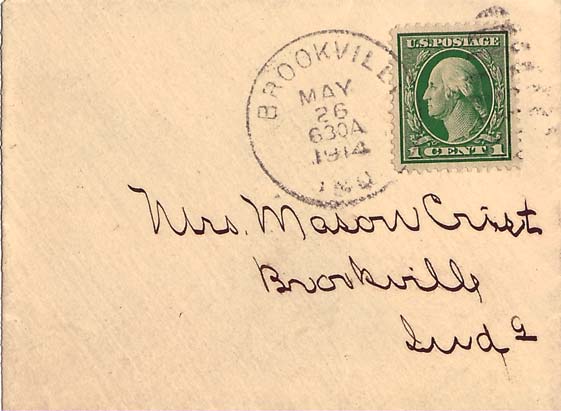 BROOKVILLE
MAY
26
630A
1914
IND
U.S. POSTAGE
1 CENT 1
Mrs. Mason Crist
Brookville
Ind a